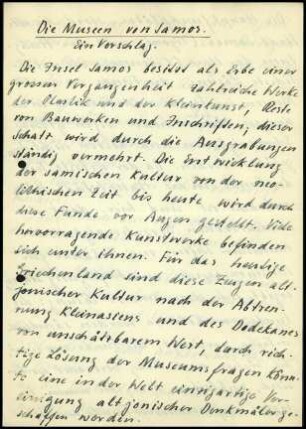 Die Museen von Samos.
Ein Vorschlag.
Die Insel Samos besitzt als Erbe einer
grossen Vergangenheit zahlreiche Werke
der Plastik und der Kleinkunst, Reste
von Bauwerken und Inschriften; dieser
Schatz wird durch die Ausgrabungen
ständig vermehrt. Die Entwicklung
der samischen Kultur von der neo-
lithischen Zeit bis heute wird durch
diese Funde vor Augen gestellt. Viele
hervorragende Kunstwerke befinden
sich unter ihnen. Für das heutige
Griechenland sind diese Zeugen alt-
jonischer Kultur nach der Abtren-
nung Kleinasiens und des Dodekanes
von unschätzbarem Wert, durch rich-
tige Lösung der Museumsfragen könn-
te eine in der Welt einzigartige Ver-
einigung alt jonischer Denkmäler ge-
schaffen werden.